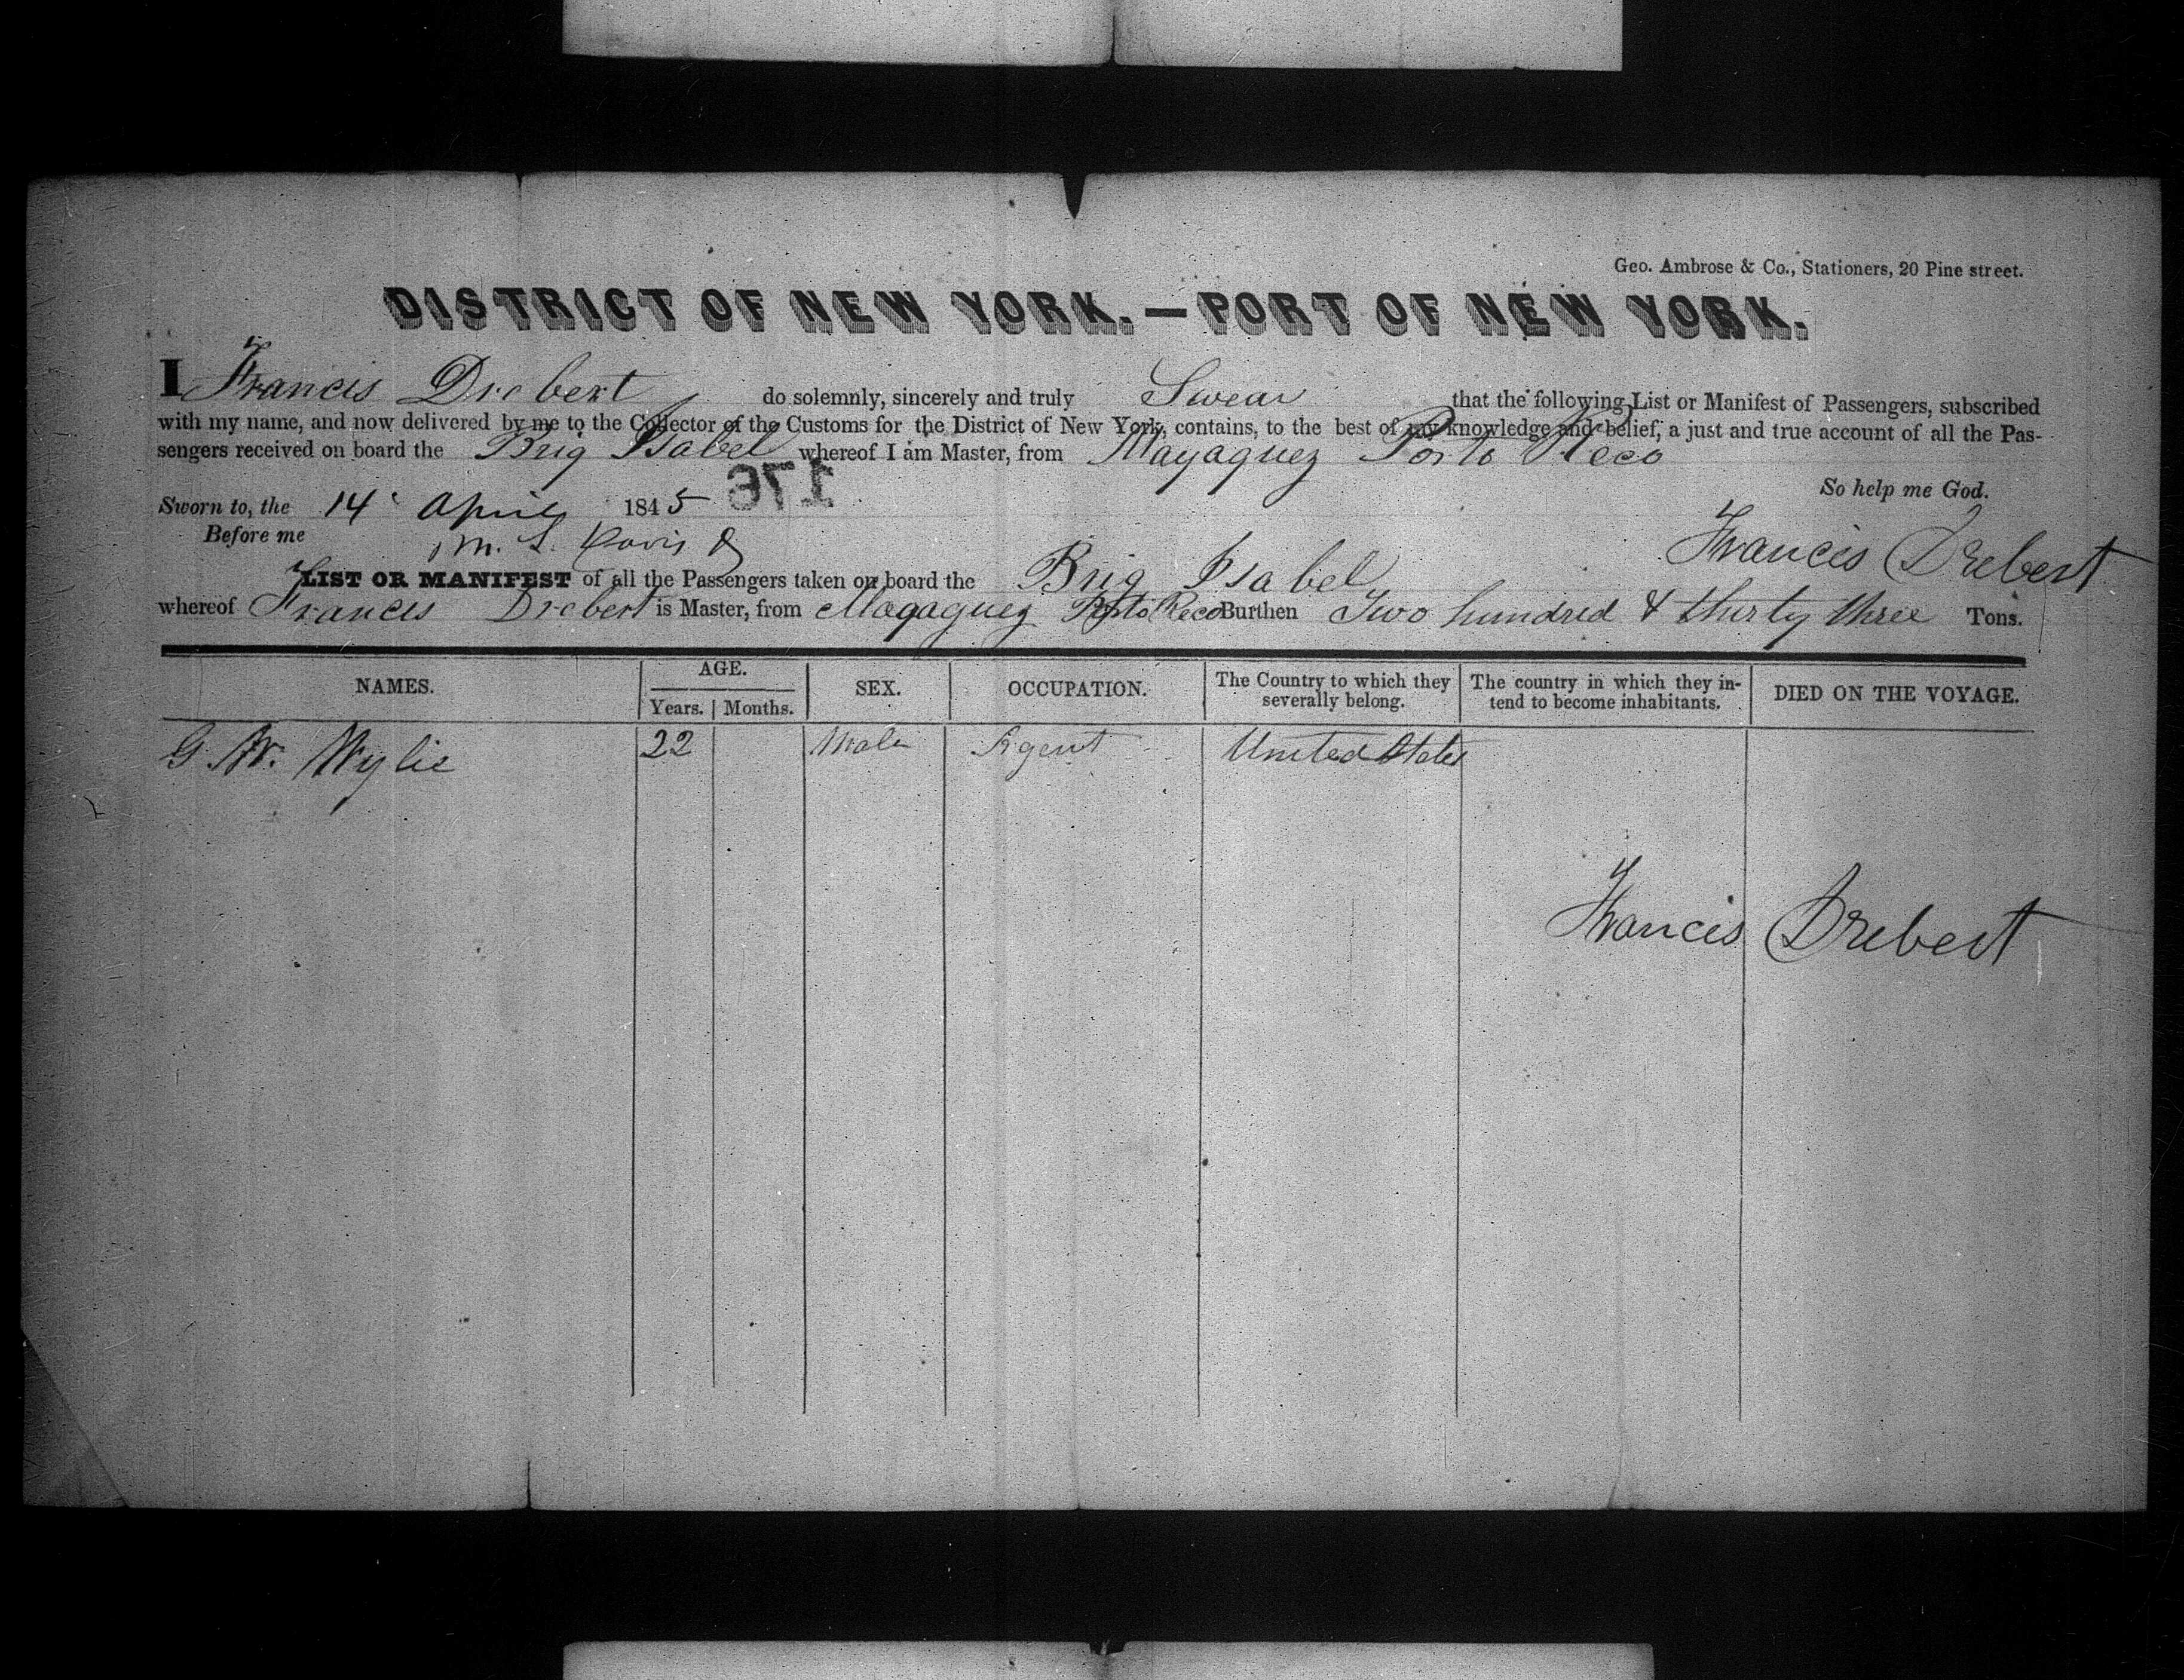 Geo. Ambrose & Co., Stationers, 20 Pine street.
DISTRICT OF NEW YORK.—PORT OF NEW YORK.
I Francis Drebert do solemnly, sincerely and truly Swear that the following List or Manifest of Passengers, subscribed
with my name, and now delivered by me to the Collector of the Customs for the District of New York, contains, to the best of my knowledge and belief, a just and true account of all the Pas-
sengers received on board the Brig Isabel whereof I am Master, from Mayaguez Porto Reco
So help me God.
Sworn to, the 14 April 1845 176
Before me M. L. Davis
Francis Drebert
LIST OR MANIFEST of all the Passengers taken on board the Brig Isabel
whereof Francis Drebert is Master, from Mayaguez Porto Reco Burthen Two hundred & thirty three Tons.
NAMES. AGE. SEX. OCCUPATION. The Country to which they severally belong. The country in which they in-tend to become inhabitants. DIED ON THE VOYAGE.
Years. Months.
G. W. Wylie 22 Male Agent United States
Francis Drebert